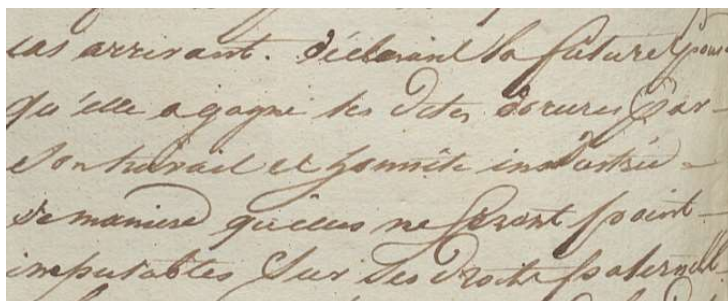 cas arrivant. déclarant la future épouse
qu'elle a gagné les dites dorures par
son travail et honnête industrie
de maniere qu'elles ne seront point
imputables sur ses droits paternells